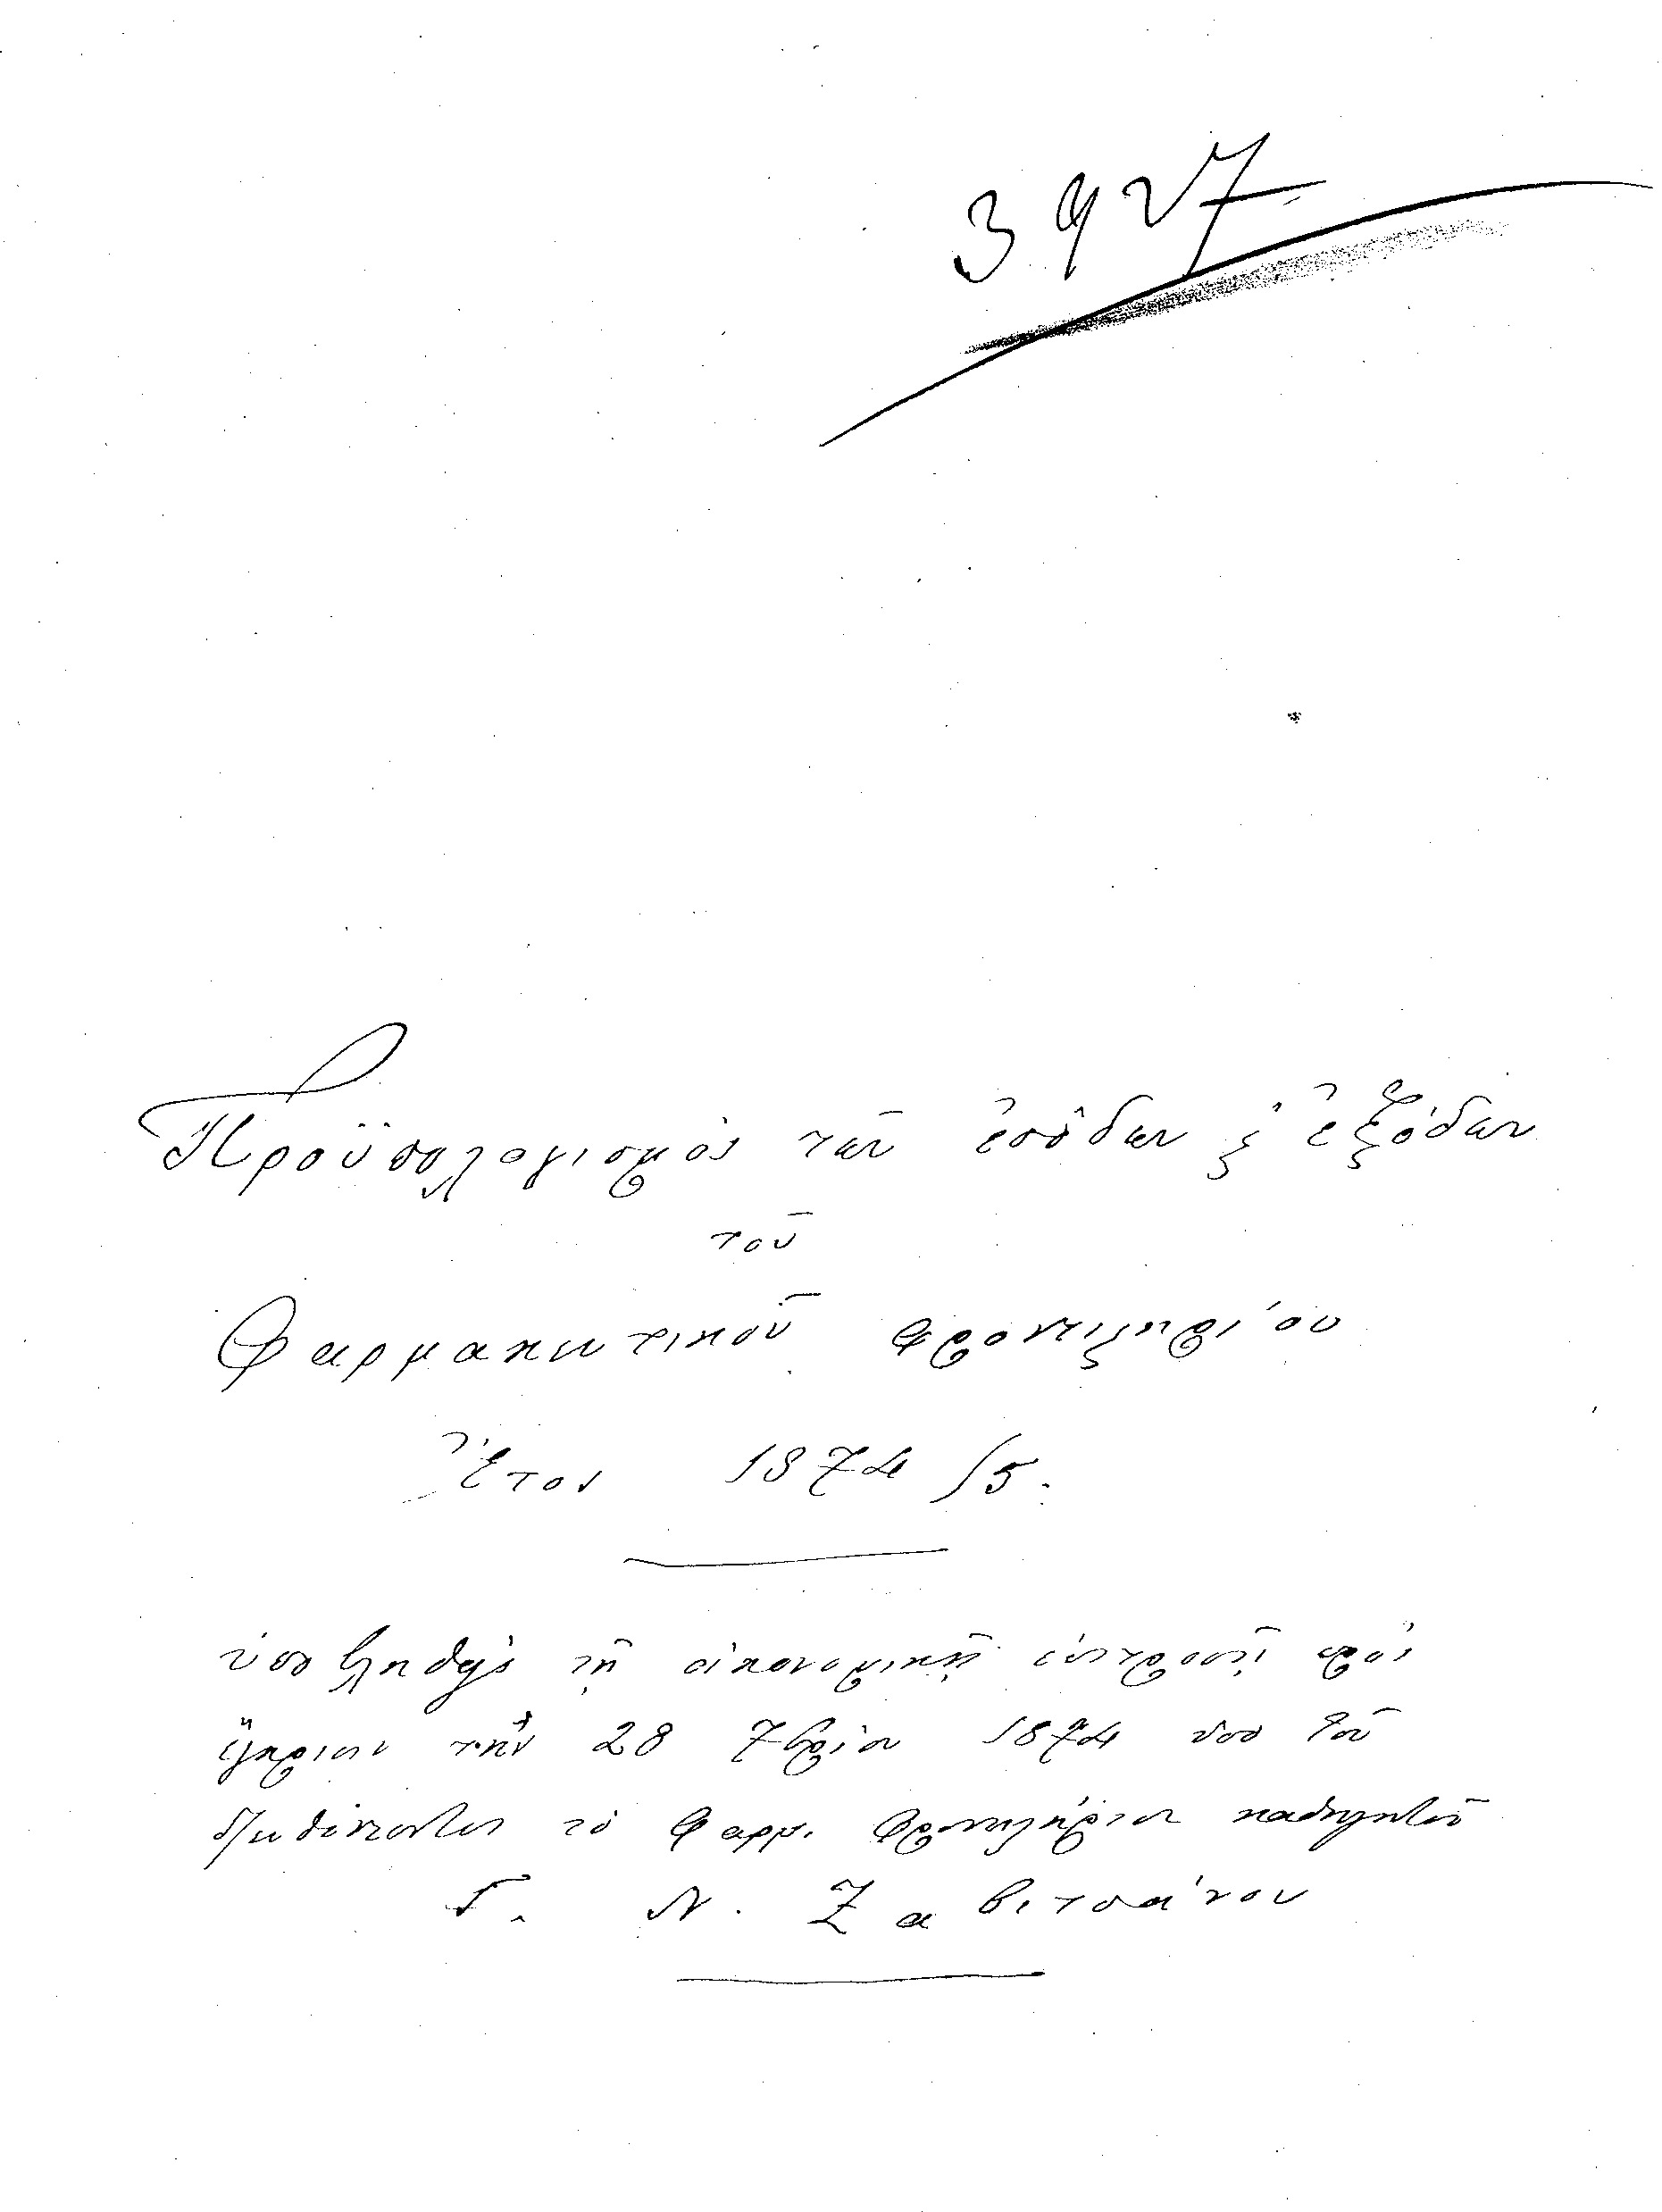 3927
Προϋπολογισμὸς τῶν ἐσόδων ϗ ἐξόδων
τοῦ
Φαρμακευτικοῦ Φροντιστηρίου
Ἔτος 1874/5.
ὑποβληθεὶς τῇ οἰκονομικῇ ἐπιτροπῇ πρὸς
ἔγκρισιν τὴν 28 7βρίου 1874 ὑπὸ τοῦ
διευθύνοντος τὸ Φαρμ. Φροντιστήριον καθηγητοῦ
Γ. Ν. Ζαβιτσάνου